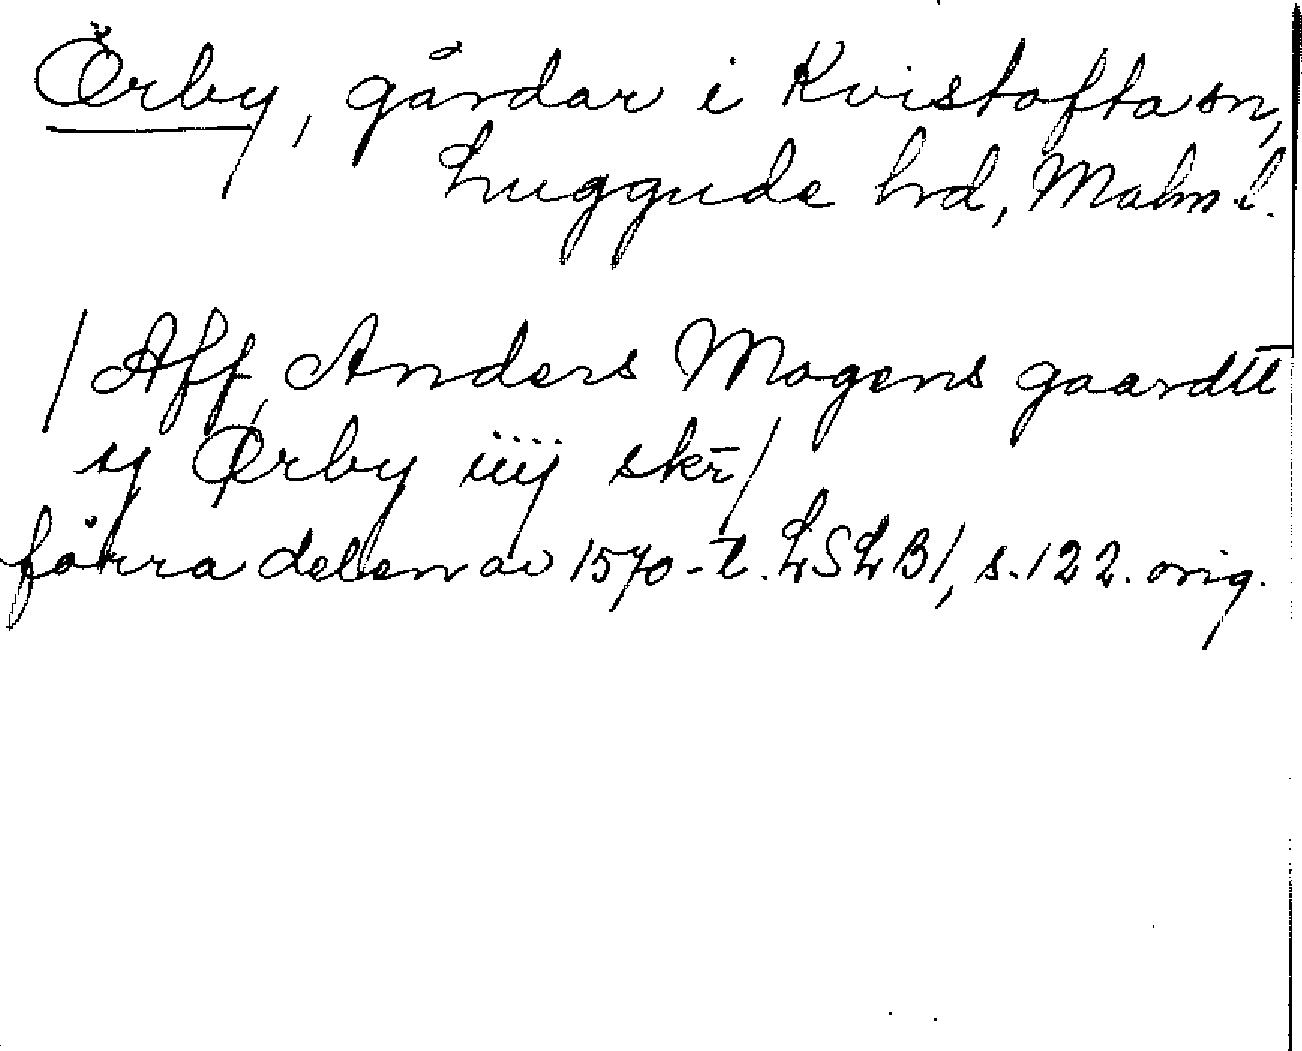 Örby, gårdar i Kvistofta sn,
Luggude hd, Malm. l.
/Aff Anders Mogens gaardtt
y Ørby iiij skr̄/
förra delen av 1570-t. LSLB1, s. 122. orig.